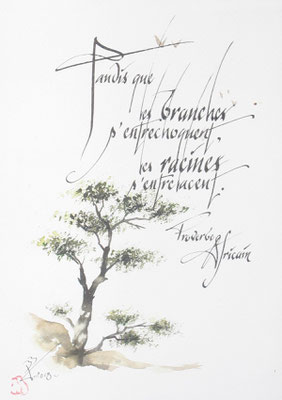 Tandis que
les branches
s'entrechoquent,
les racines
s'entrelacent.
Proverbe
Africain